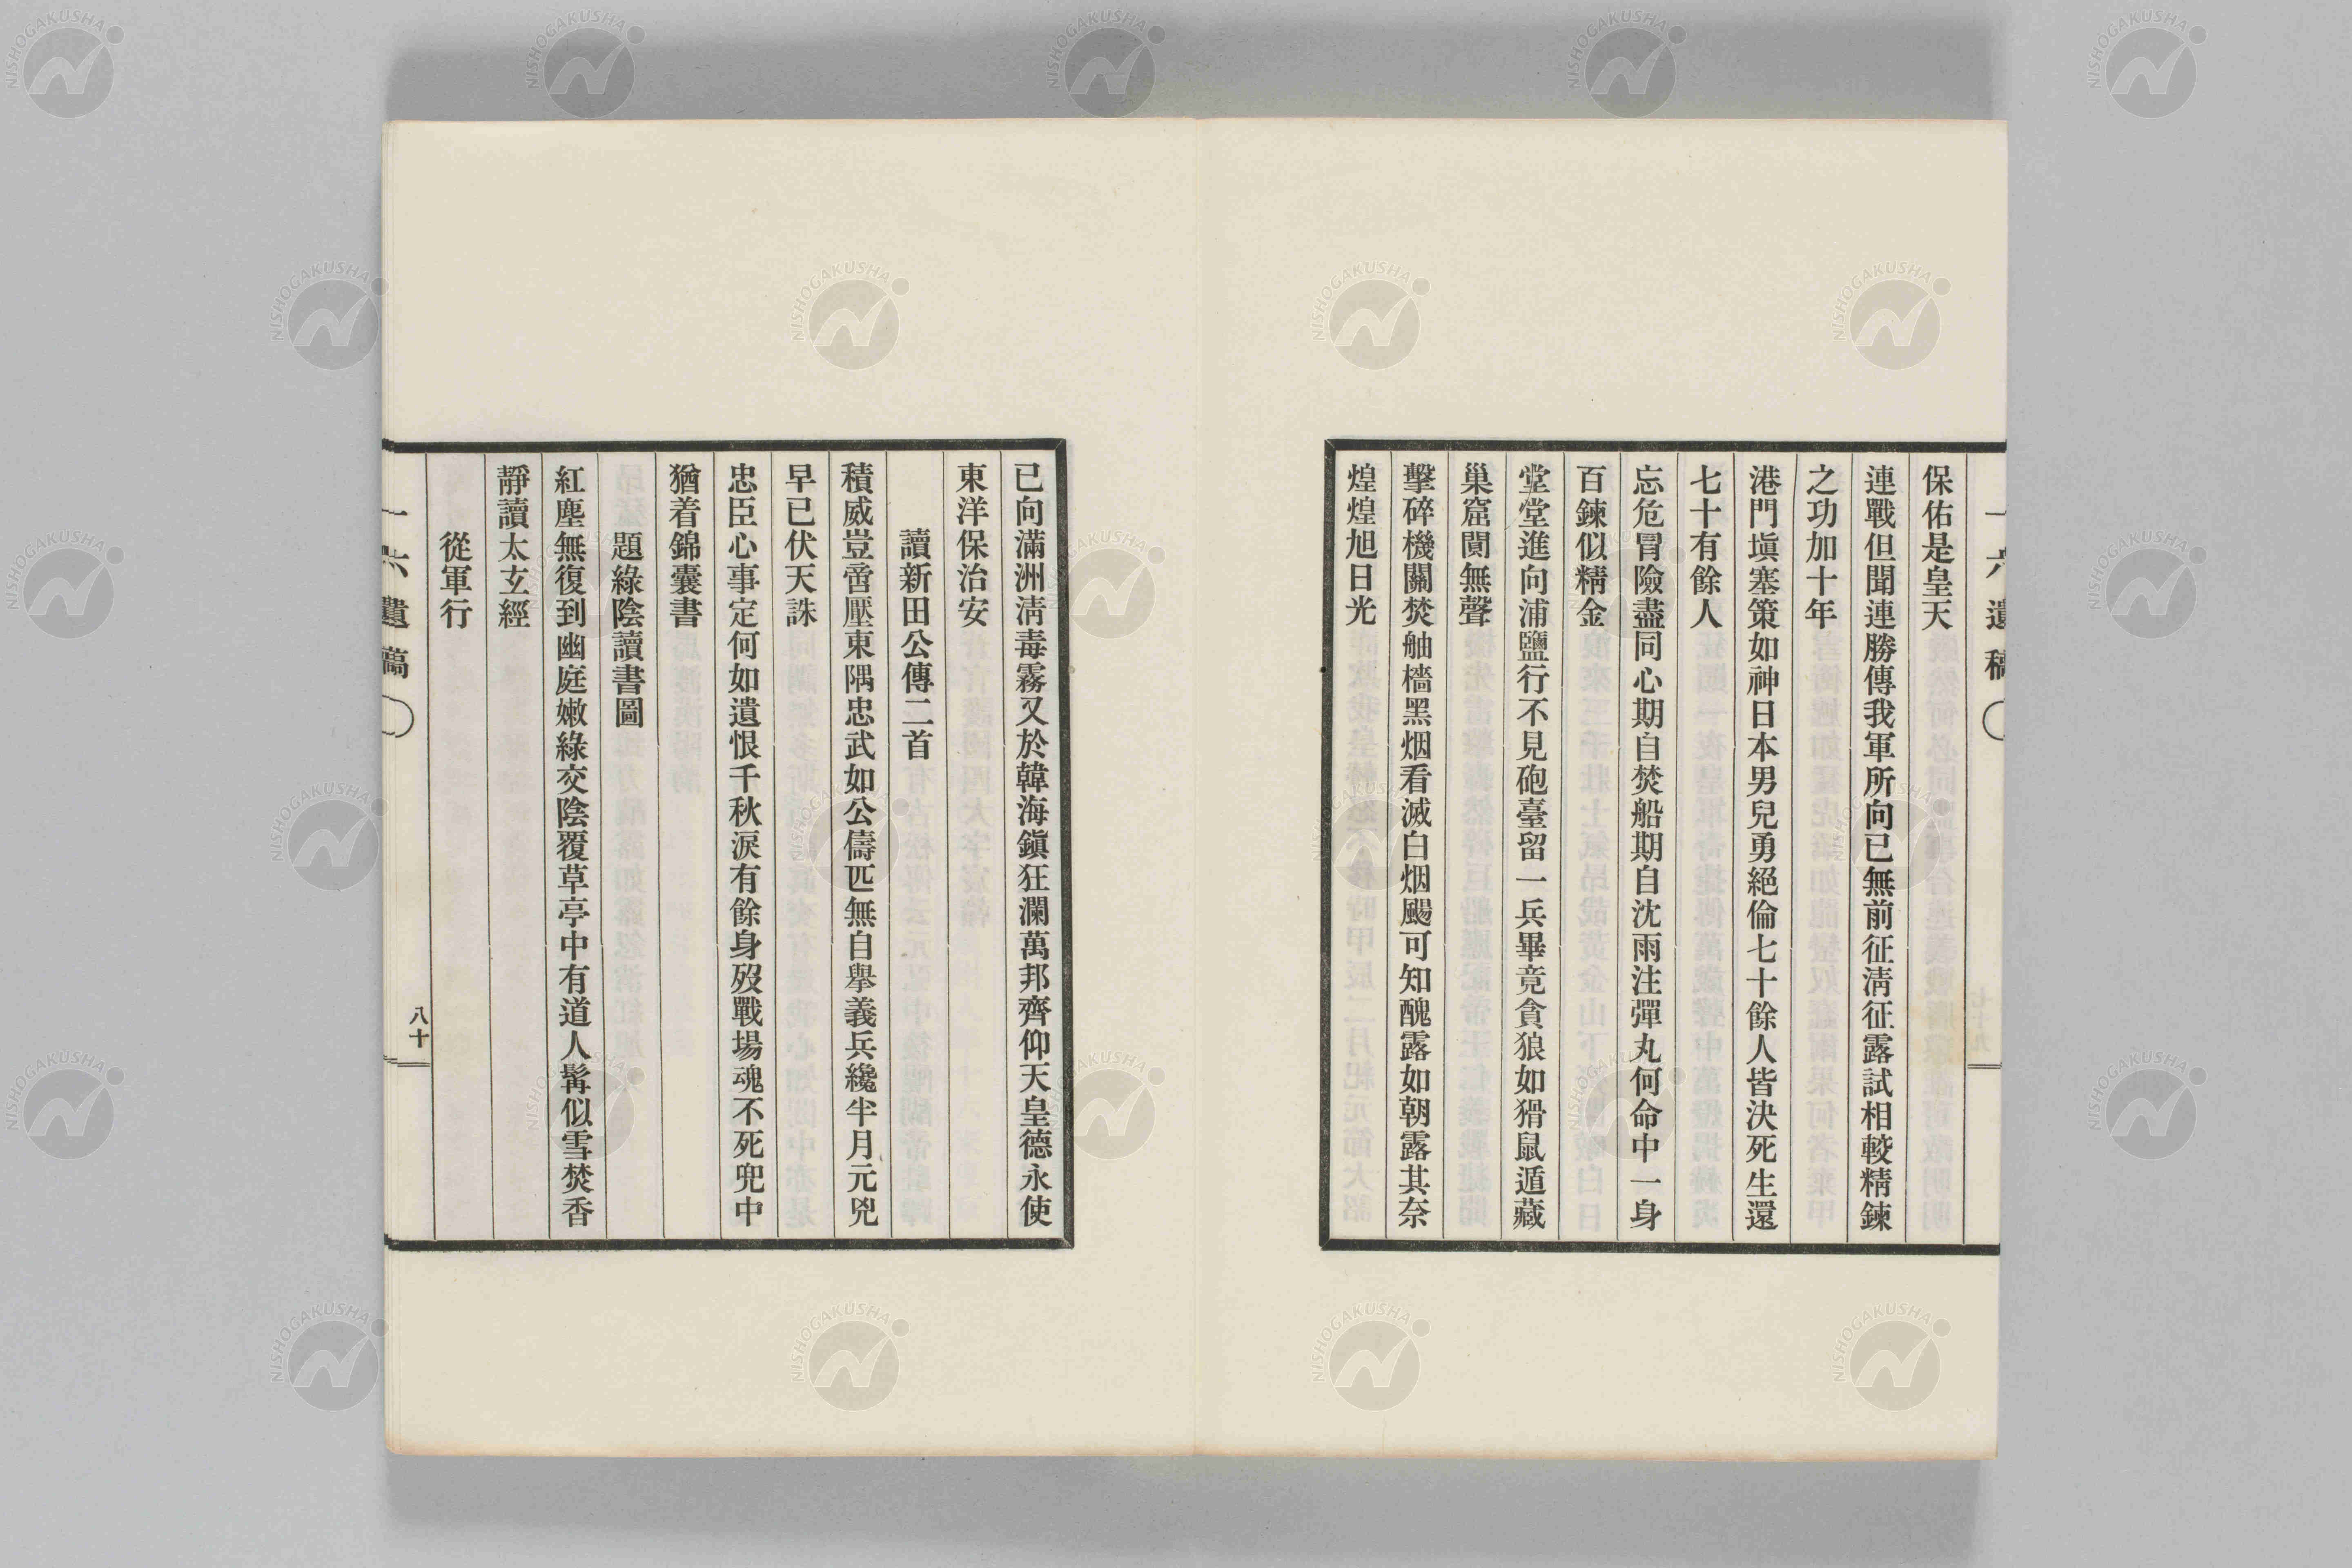 一六遺稿
保佑是皇天
連戰但聞連勝傳我軍所向已無前征淸征露試相較精鍊
之功加十年
港門塡塞策如神日本男兒勇絕倫七十餘人皆決死生還
七十有餘人
忘危冒險盡同心期自焚船期自沈雨注彈丸何命中一身
百鍊似精金
堂堂進向浦鹽行不見砲臺留一兵畢竟貪狼如猾鼠遁藏
巢窟闃無聲
擊碎機關焚舳檣黑烟看滅白烟颺可知醜露如朝露其奈
煌煌旭日光
已向滿洲淸毒霧又於韓海鎭狂瀾萬邦齊仰天皇德永使
東洋保治安
讀新田公傳二首
積威豈啻壓東隅忠武如公儔匹無自擧義兵纔半月元兇
早已伏天誅
忠臣心事定何如遺恨千秋淚有餘身歿戰場魂不死兜中
猶着錦囊書
題綠陰讀書圖
紅塵無復到幽庭嫩綠交陰覆草亭中有道人髯似雪焚香
靜讀太玄經
從軍行
一六遺稿
八十
NISHOGAKUSHA